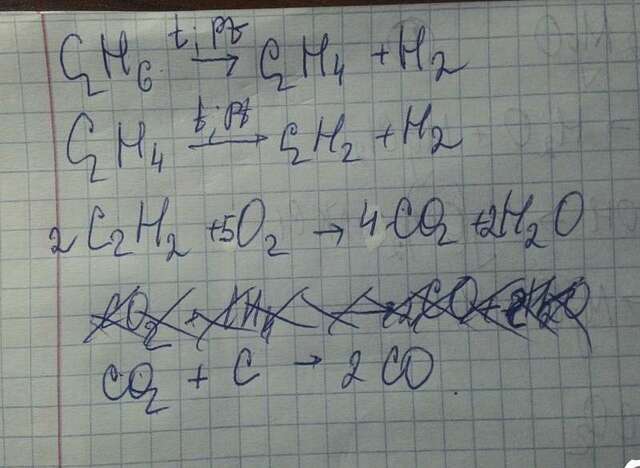 C2H6 t; Pt → C2H4 + H2
C2H4 t; Pt → C2H2 + H2
2C2H2 + 5O2 → 4CO2 + 2H2O
CO2 + C → 2CO